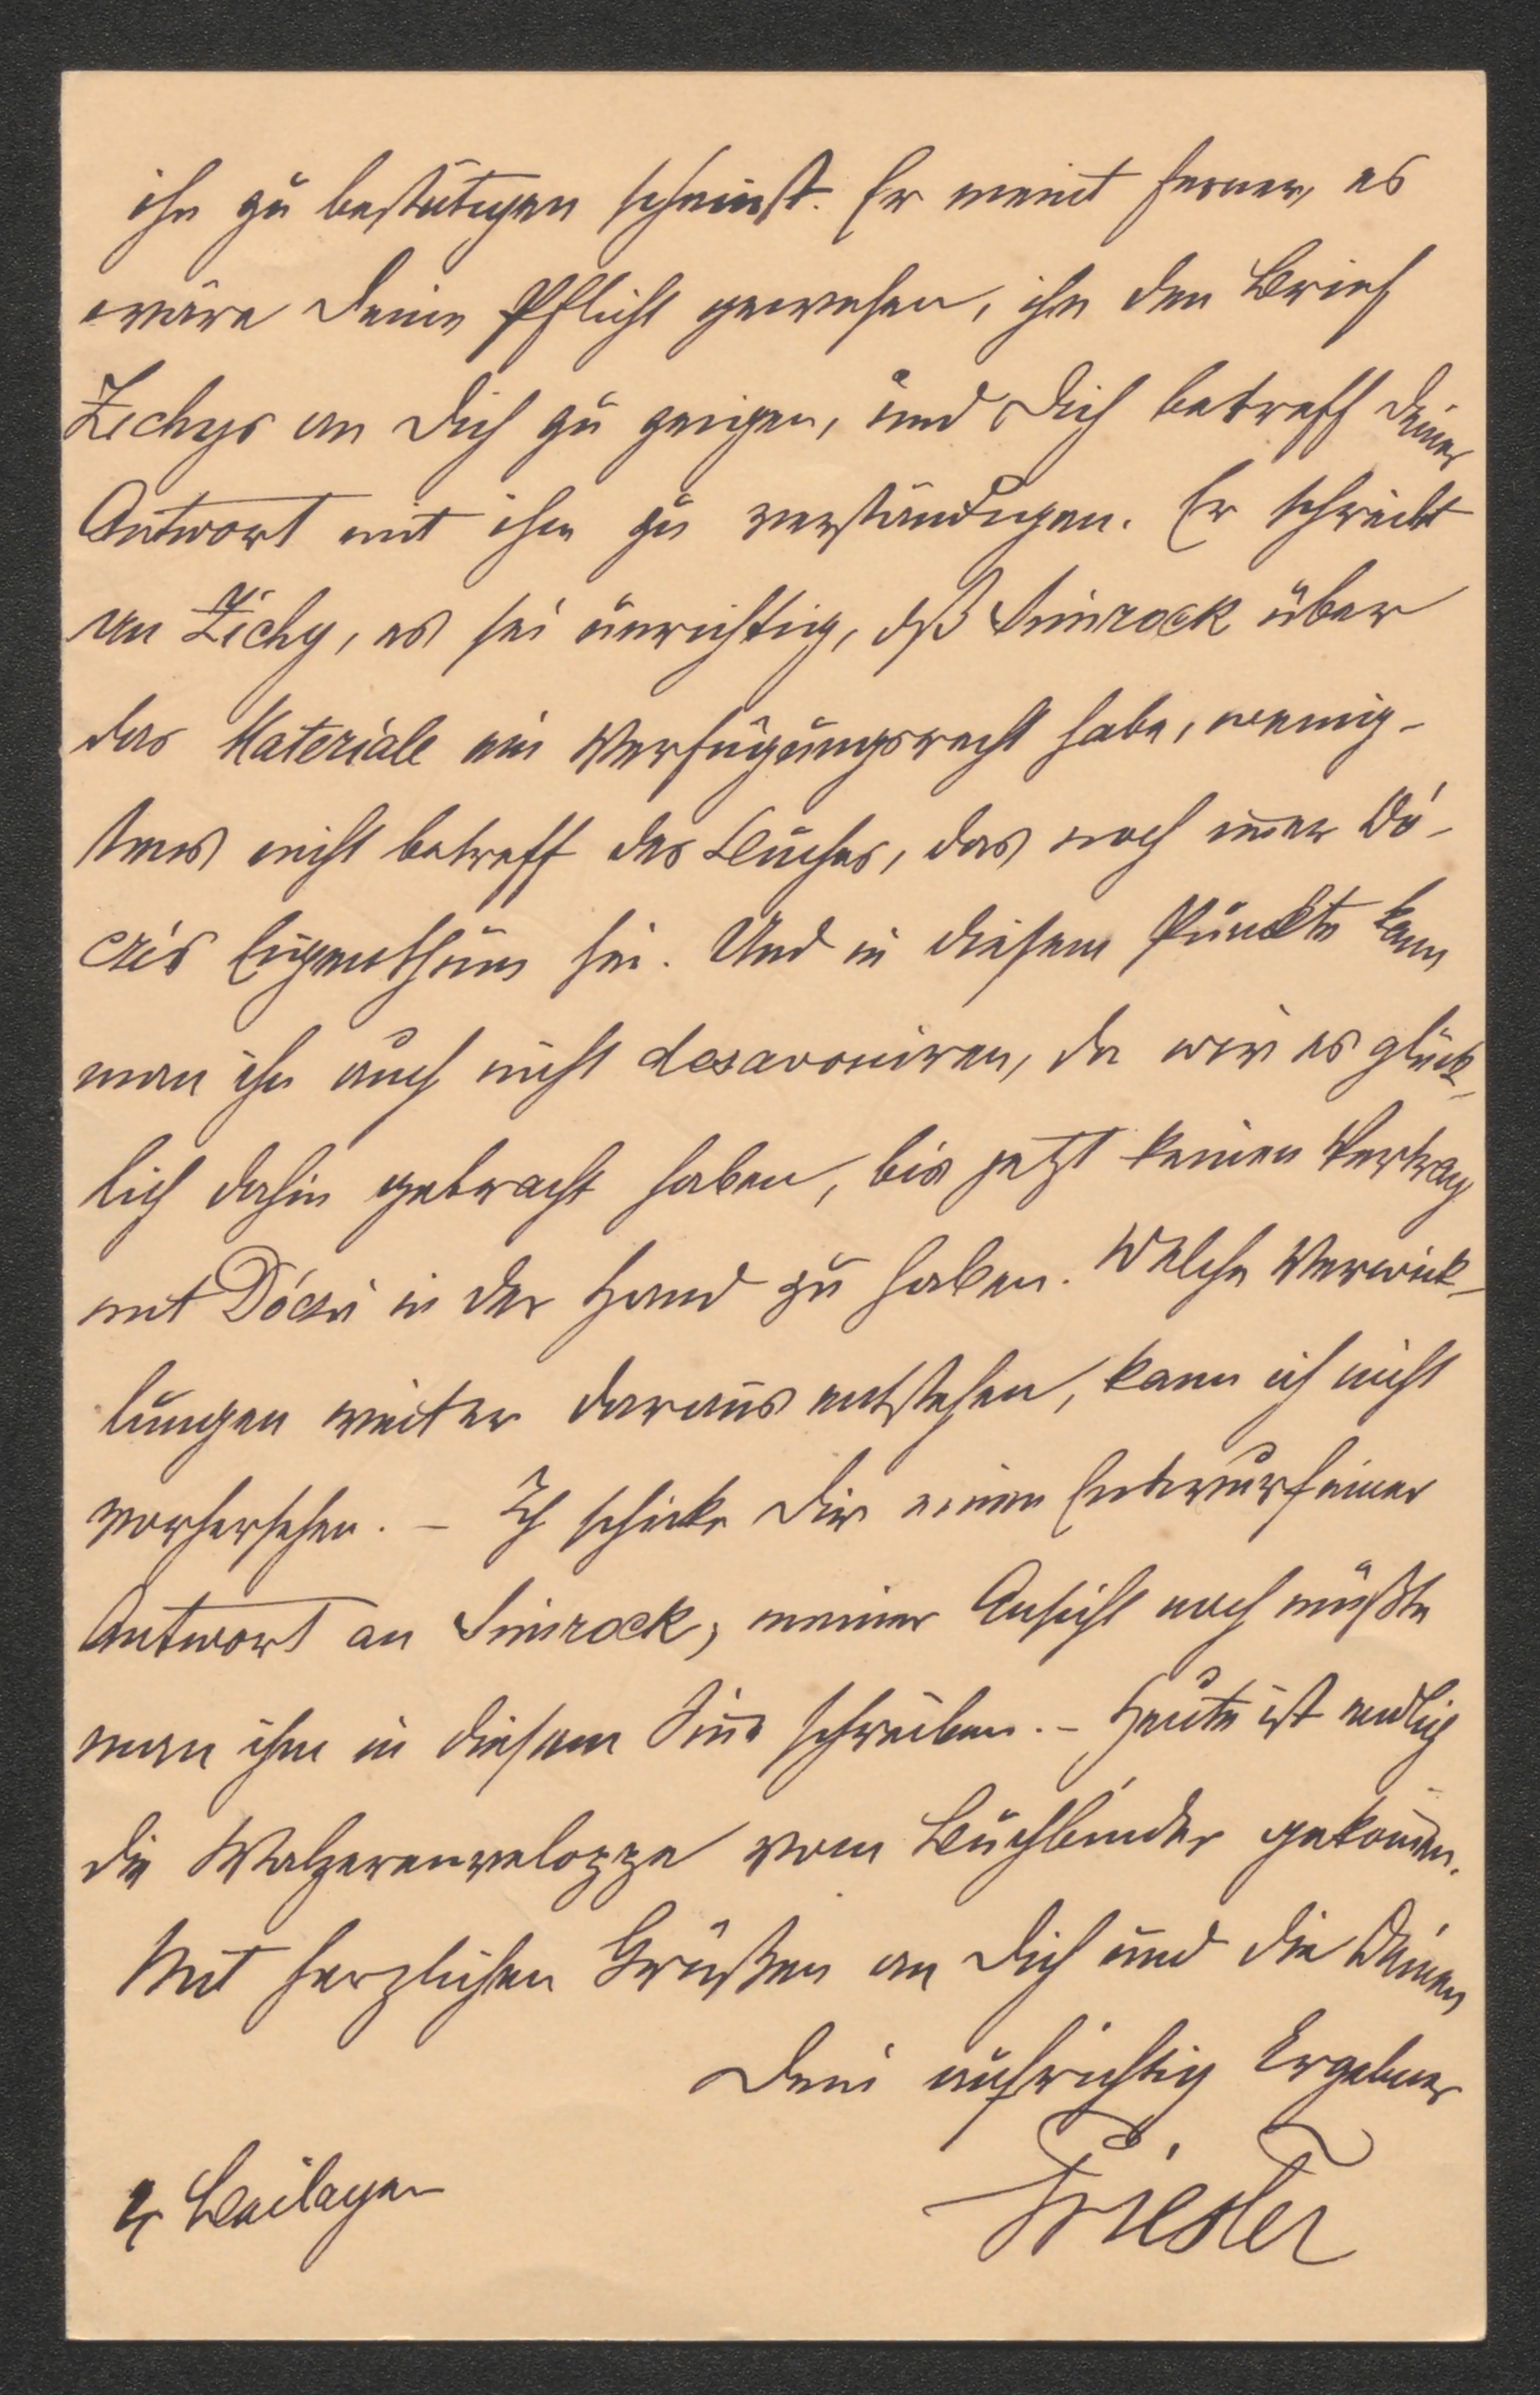 ihn zu bestätigen scheinst. Er meint ferner, es
wäre Deine Pflicht gewesen, ihm den Brief
Zichys an Dich zu zeigen, und Dich betreff Deiner
Antwort mit ihm zu verständigen. Er schreibt
an Zichy, es sei unrichtig, dß Simrock über
das Materiale ein Verfügungsrecht habe, wenig-
stens nicht betreff des Buches, das noch im̄er Dó-
czis Eigenthum sei. Und in diesem Punkte kann
man ihn auch nicht desavouiren, da wir es glück-
lich dahin gebracht haben, bis jetzt keinen Vertrag
mit Dóczi in der Hand zu haben. Welche Verwick-
lungen weiter daraus entstehen, kann ich nicht
vorhersehen. – Ich schicke Dir einen Entwurf einer
Antwort an Simrock, meiner Ansicht nach müßte
man ihm in diesem Sin̄e schreiben. – Heute ist endlich
die Walzerenveloppe vom Buchbinder gekom̄en.
Mit herzlichen Grüßen an Dich und die Deinen
Dein aufrichtig Ergebner
Priester
4 Beilagen